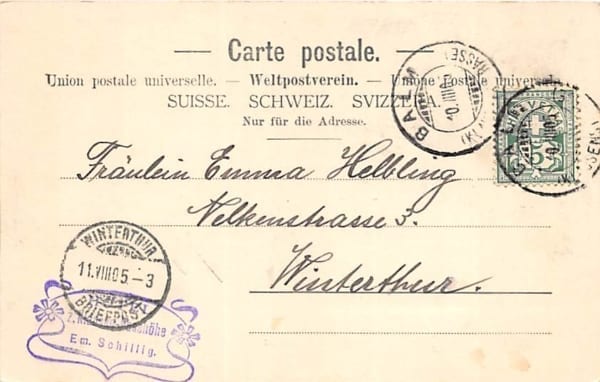 Carte postale.
Union postale universelle. — Weltpostverein. — Unione postale universale
SUISSE. SCHWEIZ. SVIZZERA.
Nur für die Adresse.
Fräulein Emma Helbling
Nelkenstrasse 3.
Winterthur.
WINTERTHUR
11.VIII.05.-3
BRIEFPOST
Em. Schillig.